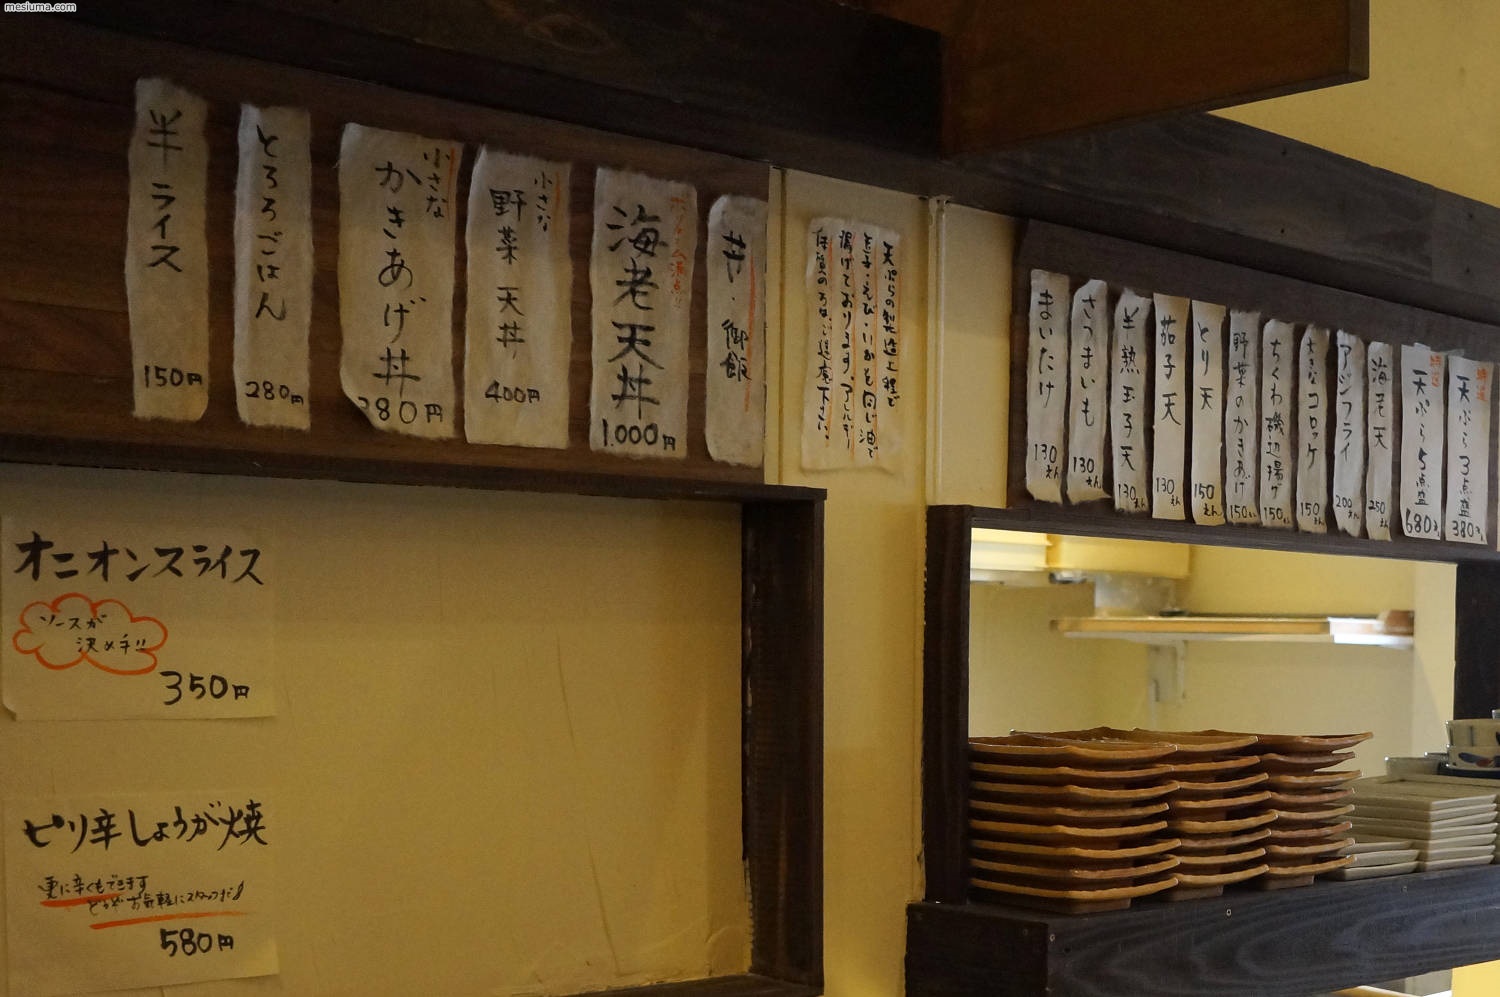 mesiuma.com
半ライス
150円
とろろごはん
280円
小さな
かきあげ丼
380円
小さな
野菜天丼
400円
ボリューム満点!!
海老天丼
1.000円
丼・御飯
天ぷらの製造工程で
玉子・えび・いかも同じ油で
揚げております。アレルギー
体質の方はご遠慮下さい。
まいたけ
130えん
さつまいも
130えん
半熟玉子天
130えん
茄子天
130えん
とり天
150えん
野菜のかきあげ
150えん
ちくわ磯辺揚げ
150えん
大きなコロッケ
150えん
アジフライ
200えん
海老天
250えん
天ぷら5点盛
680えん
天ぷら3点盛
380えん
オニオンスライス
ソースが
決め手!!
350円
ピリ辛しょうが焼
更に辛くもできます
どうぞお気軽にスタッフまで
580円